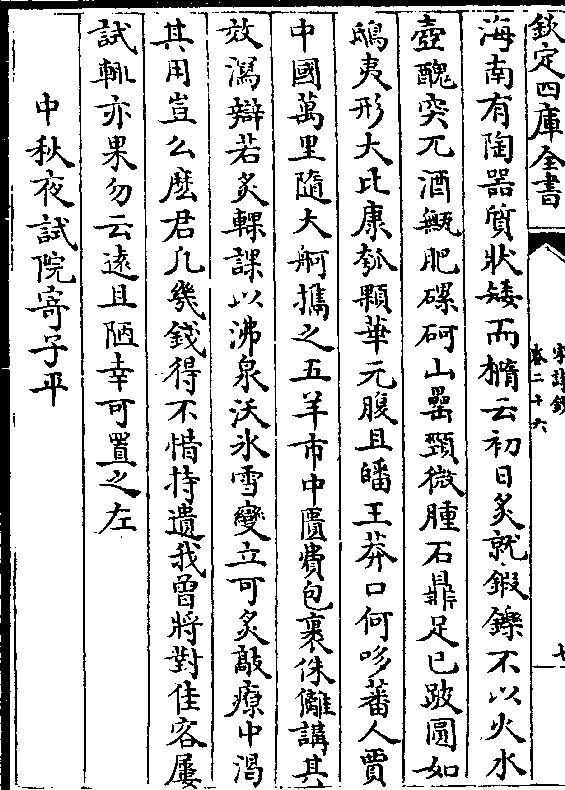 欽定四庫全書
宋詩鈔
卷二十六
七
海南有陶器質狀矮而橢云初日炙就鍜鑠不以火水
壺醜突兀酒甁肥磥砢山罍頸微腫石鼎足已跛圓如
鴟夷形大比康瓠顆華元腹且皤王莽口何哆蕃人賈
中國萬里隨大舸擕之五羊市中匱費包裹侏𠌯講其
效瀉辯若炙輠課以沸泉沃氷雪變立可炙敲療中渴
其用豈么麽君凡幾錢得不惜持遺我曾將對佳客屢
試輒亦果勿云逺且陋幸可置之左
中秋夜試院寄子平